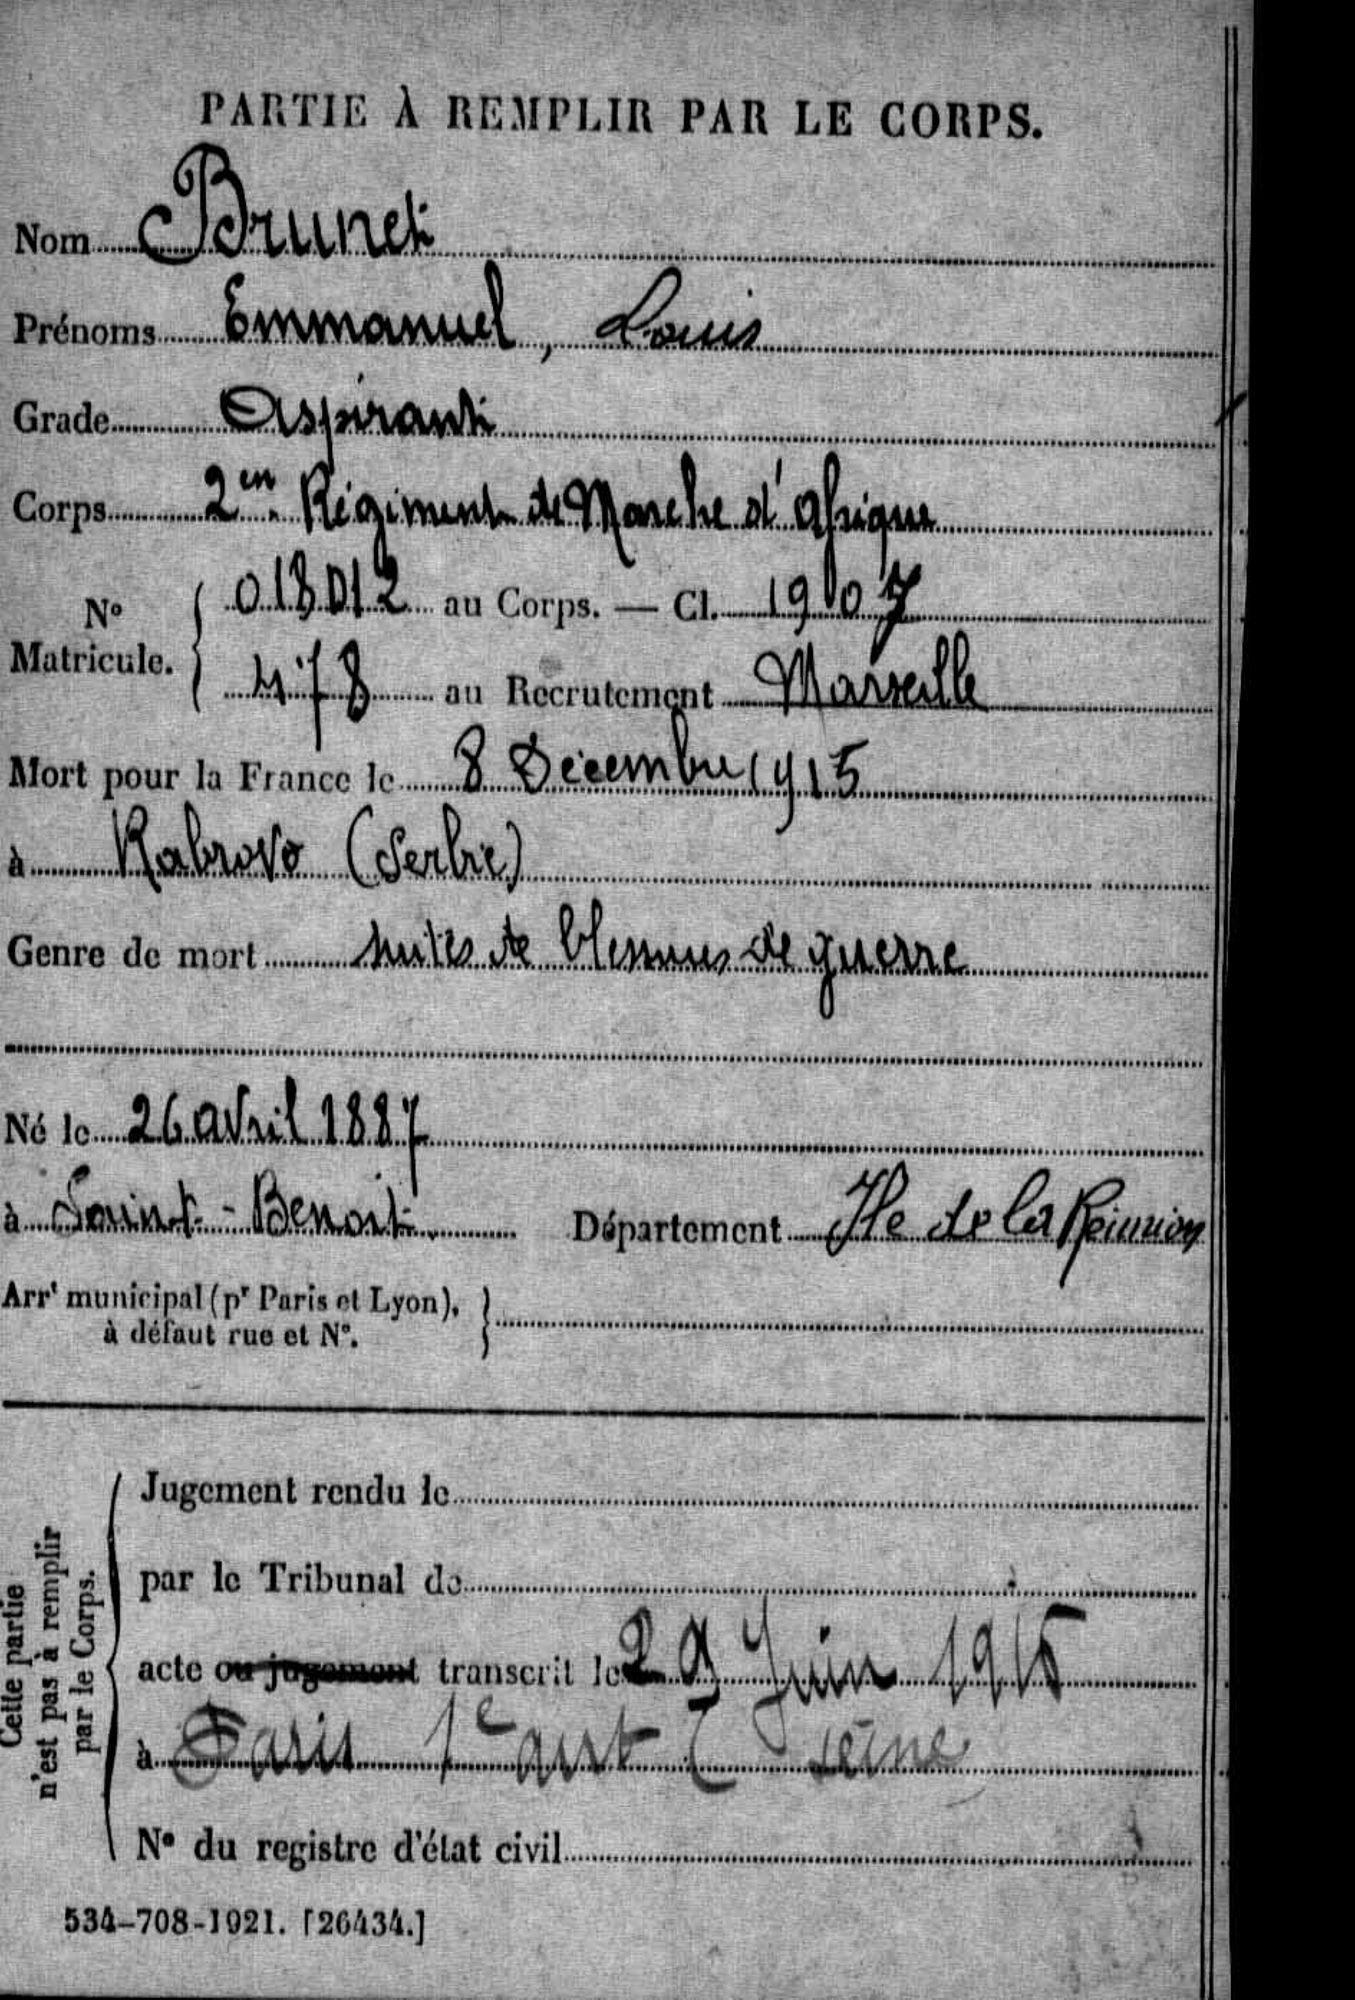 PARTIE À REMPLIR PAR LE CORPS.
Nom Brunet
Prénoms Emmanuel, Louis
Grade Aspirant
Corps 2en Régiment de Marche d'Afrique
No Matricule. 018012 au Corps. — Cl. 1907
478 au Recrutement Marseille
Mort pour la France le 8 Décembre 1915
à Rabrovo (Serbie)
Genre de mort suites de blessures de guerre
Né le 26 avril 1887
à Saint-Benoit Département Ile de la Réunion
Arrt municipal (pr Paris et Lyon), à défaut rue et No.
Cette partie n'est pas à remplir par le Corps.
Jugement rendu le
par le Tribunal de
acte ou jugement transcrit le 29 Juin 1916
à Paris 1e arrt Seine
No du registre d'état civil
534-708-1921. [26434.]